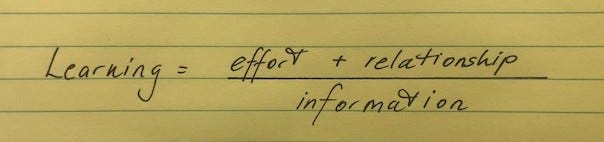 Learning = effort + relationship
information